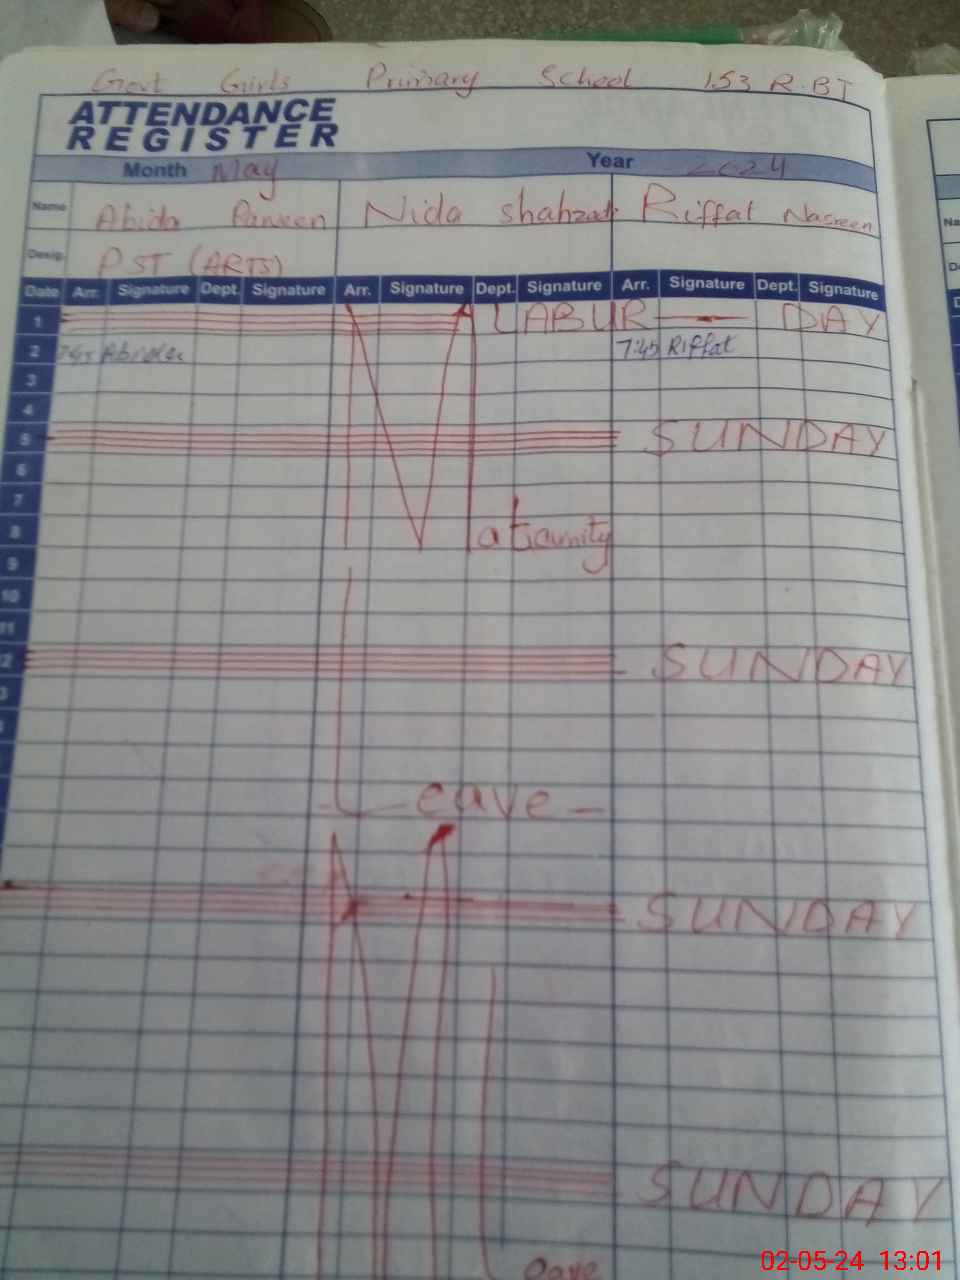 Govt Girls Primary School 153 R.BT
ATTENDANCE
REGISTER
Month May Year 2024
Name Abida Parveen Nida shahzadi Riffat Nasreen
Desig. PST (ARTS)
Date Arr. Signature Dept. Signature Arr. Signature Dept. Signature Arr. Signature Dept. Signature
1 LABUR DAY
2 7:45 7:45 Riffat
3
4
5 SUNDAY
6
7
8 Maternity
9
10
11
12 SUNDAY
13
Leave
SUNDAY
M
SUNDAY
02-05-24 13:01